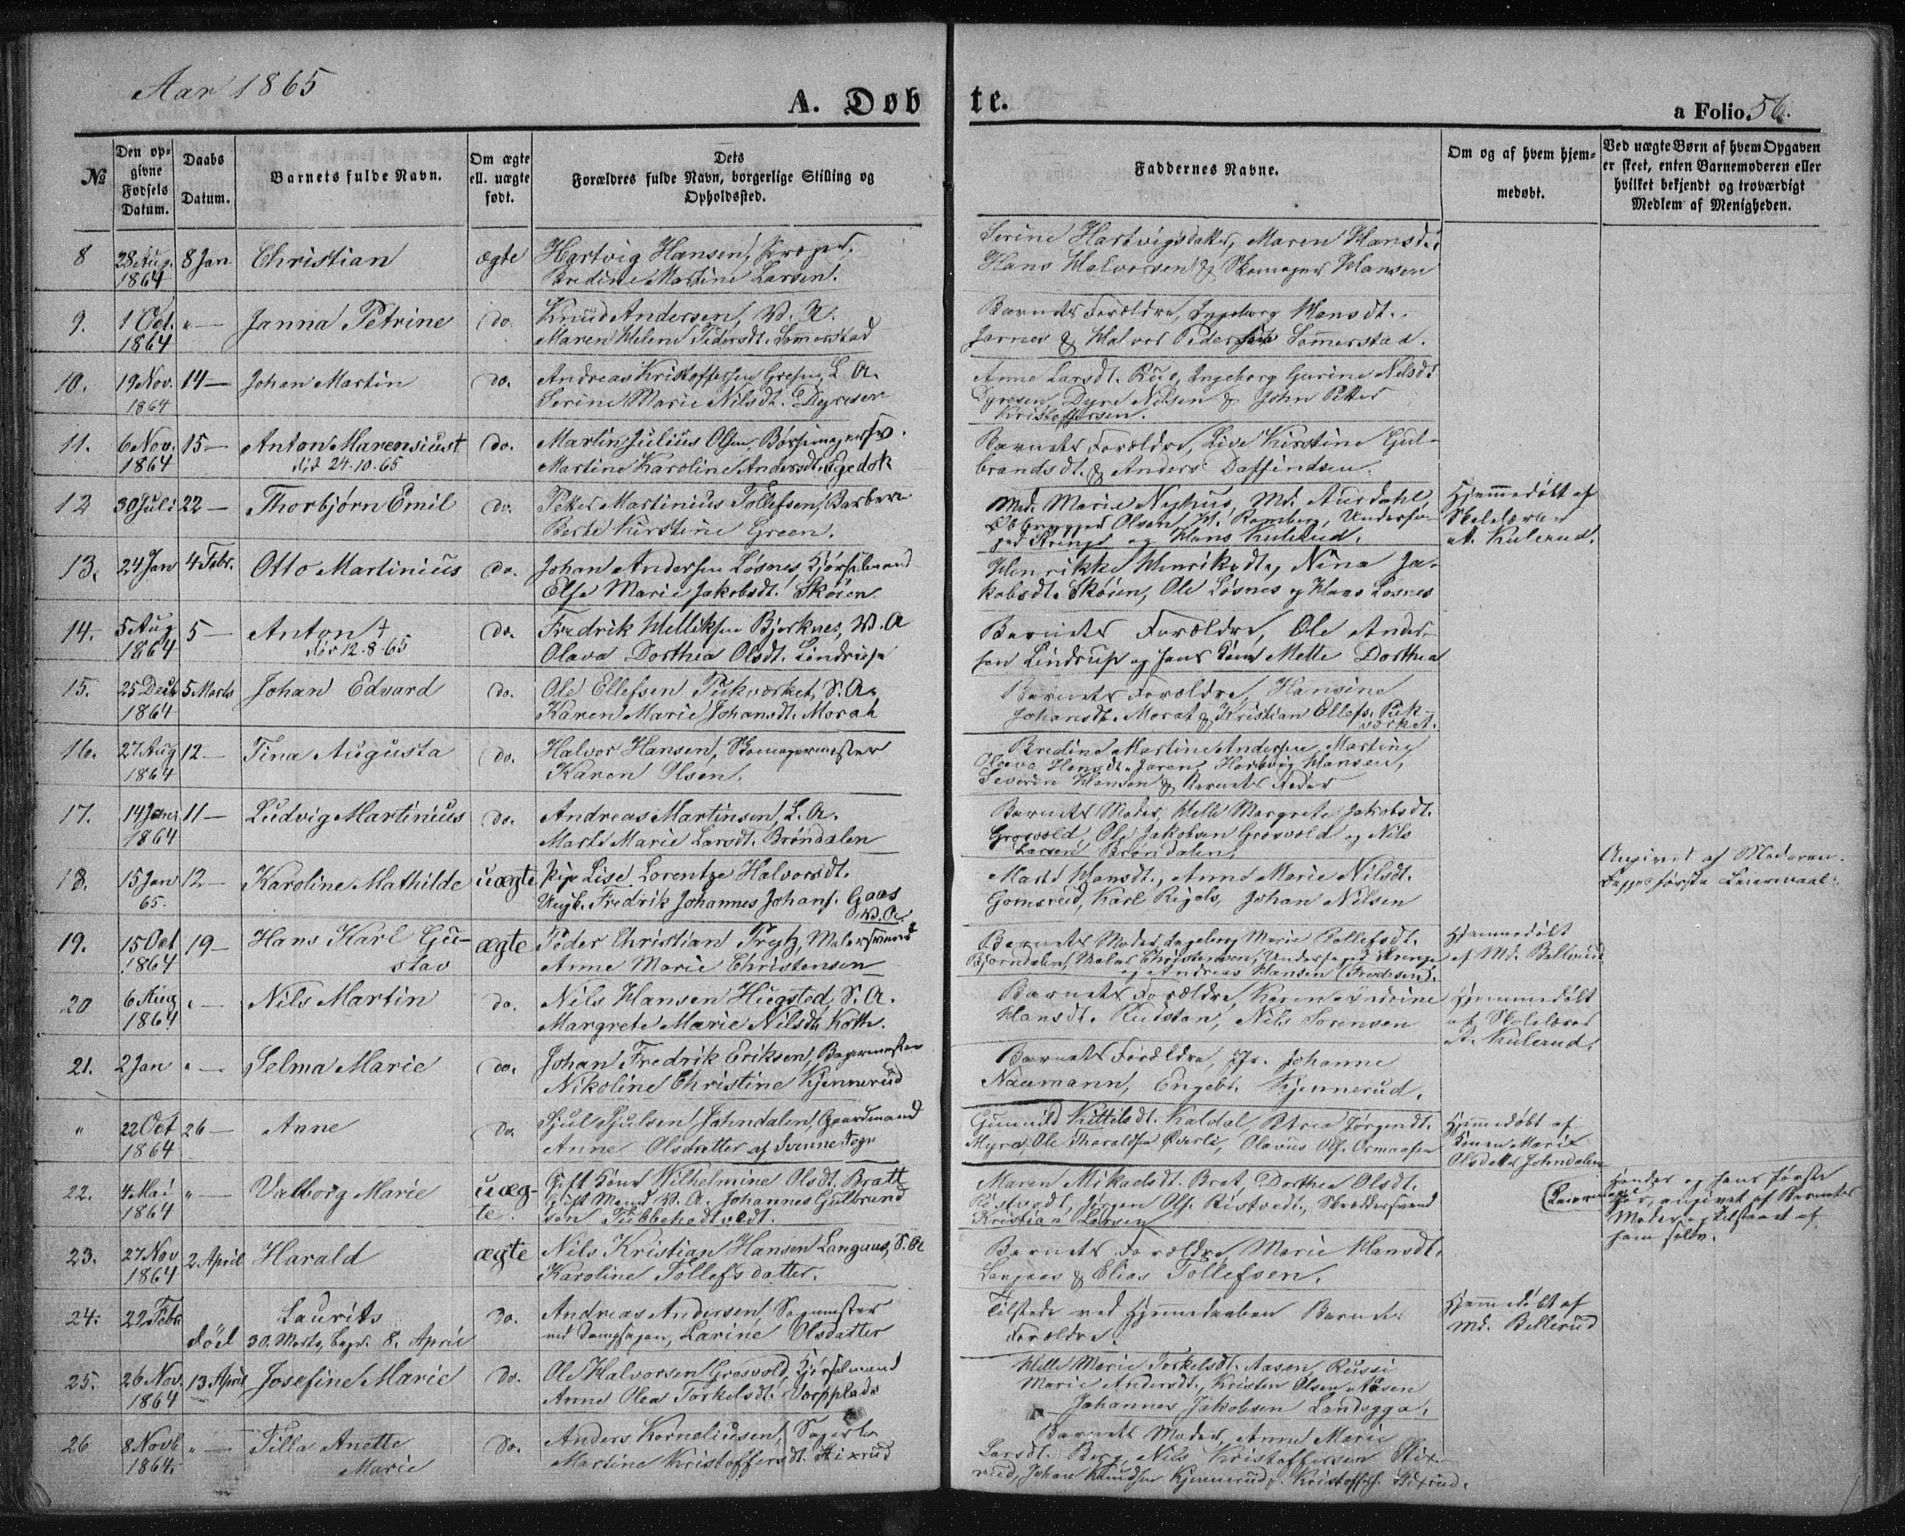 Aar 1865
A. Døbte.
a Folio 56.
№
Den opgivne Fødsels Datum.
Daabs Datum.
Barnets fulde Navn.
Om ægte ell. uægte født.
Dets Forældres fulde Navn, borgerlige Stilling og Opholdssted.
Faddernes Navne.
Om og af hvem hjemmedøbt.
Ved uægte Børn af hvem Opgaven er skeet, enten Barnemoderen eller hvilket bekjendt og troværdigt Medlem af Menigheden.
8 28 Aug. 1864 8 Jan Christian ægte Hartvig Hansen,
Martine Larsen.
Serine Hartvigsdatter, Maren Hansd.
Hans Halvorsen & Skomager Hansen
9. 1 Oct. 1864 " — Janna Petrine do. Knud Andersen, W. A.
Maren Helene Pedersdt. Sommerstad
Barnets Forældre, Ingeborg Hansdt.
Jarnes & Halvor Pedersen Sommerstad.
10. 19 Nov. 1864 14 — Johan Martin do. Andreas Kristoffersen L. A.
Serine Marie Nilsdt.
Anne Larsdt. Rus, Ingeborg Gurine Nilsdt
Nilsen & John Petter
Kristoffersen.
11. 6 Nov. 1864 15 — Anton Marensius †
død 24.10.65
do. Martin Julius Olsen,
Martine Karoline Andersdt. Egedok
Barnets Forældre, Lise Kirstine Gulbrandsdt. & Anders Daffindsen
12 30 Juli 22 — Thorbjørn Emil do. Peter Martinius Tollefsen, Barber
Berte Kirstine Green.
Md. Marie Nyhus, Md. Aurdahl,
Olsen, H. Ramberg,
og Hans Kulerud.
Hjemmedøbt af
Skolelærer
A. Kulerud.
13. 24 Jan 4 Febr. Otto Martinius do. Johan Andersen Løsnes, Kjørselmand
Else Marie Jakobsdt. Skøien
Henrikke Henriksdt, Nina Jakobsdt. Skøien, Ole Løsnes og Hans Løsnes
14. 5 Aug 1864 5 — Anton †
død 12.8.65
do. Fredrik Helliksen Bjerknes, W. A
Olava Dorthea Olsdt. Lindrup
Barnets Forældre, Ole Andersen Lindrup og hans Kone Mette Dorthea
15. 25 Decb 1864 5 Marts Johan Edvard do. Ole Ellefsen Pukværket, S. A.
Karen Marie Johansdt. Morat
Barnets Forældre, Hansine
Johansdt. Morat & Kristian Ellefs. Pukværket.
16. 27 Aug 1864 12 — Tina Augusta do. Halvor Hansen, Skomagermester
Karen Olsen.
Bredine Martine Andersen, Martine
Olava Hansdt. Jaren, Hartvig Hansen,
Severin Hansen & Barnets Fader
17. 14 Janr. 1864 11 — Ludvig Martinius do. Andreas Martinsen, L. A.
Marte Marie Larsdt. Brøndalen
Barnets Moder, Helle Margrete Jakobsdt.
Grosvold, Ole Jakobsen Grosvold og Nils
Larsen Brøndalen.
18. 15 Jan 65. 12 — Karoline Mathilde uægte Pige Lise Lorentze Halvorsdt.
Ungk. Fredrik Johannes Johans. Gaas
W. A.
Marte Hansdt., Anne Marie Nilsdt.
Gomsrud, Karl Rigels, Johan Nilsen
Angivet af Moderen.
Begges første Leiermaal.
19. 15 Oct 1864 19 — Hans Karl Gustav ægte Peder Christian Frytz, Malersvend
Anne Marie Christensen
Barnets Moder, Ingeborg Marie Tollefsdt.
Bjørndalen, Maler Christensen,
og Andreas Hansen (Fredesen).
Hjemmedøbt
af Md. Bellerud
20 6 Aug 1864 " — Nils Martin do. Nils Hansen Hugsted, S. A.
Margrete Marie Nilsdt. Koth.
Barnets Forældre, Karen Andrine
Hansdt. Rudstan, Nils Sørensen
Hjemmedøbt
af Skolelærer
A. Kulerud.
21. 2 Jan " — Selma Marie do. Johan Fredrik Eriksen, Bagermester
Nikoline Christine Kjennerud
Barnets Forældre, Jfr. Johanne
Naumann, Engebr. Kjennerud.
" 22 Oct 1864 26 — Anne do. Gjul Gjulsen Johndalen, Gaardmand
Anne Olsdatter af Svenne Sogn
Gunnild Kittilsdt. Kaldal, Jørgensdt.
Myra, Ole Tharaldsen Øverli, Olavus Ols. Ormaasen
Hjemmedøbt af
Konen Marie
Olsdatter Johndalen
22. 4 Mai 1864 " — Valborg Marie uægte. Gift Kone Wilhelmine Olsdt. Bratt
Gift Mand W. A. Johannes Gulbrandsen Tubbehedtvedt.
Maren Mikaelsdt. Brat, Dorthea Olsdt.
Ristvedt, Jørgen Ols. Ristvedt, Skræddersvend
Kristian Larsen
hendes og hans første
(Leiermaal) angivet af Barnets
Moder og tilstaaet af
ham selv.
23. 27 Nov 1864 2 April Harald ægte Nils Kristian Hansen Langaas, S. A
Karoline Tollefsdatter.
Barnets Forældre, Marie Hansdt.
Langaas & Elias Tollefsen.
24. 22 Febr. død Laurits
30. Marts, begr. 8. April
do. Andreas Andersen, Sagmester
ved Dampsagen, Larine Olsdatter
Tilstede ved Hjemmedaaben Barnets
Forældre.
Hjemmedøbt af
Md. Bellerud
25. 26 Nov. 1864 13 April Josefine Marie do. Ole Halvorsen Grosvold, Kjørselmand
Anne Olea Torkelsdt.
Helle Marie Torkelsdt. Aasen,
Marie Andersdt., Kristen Olsen Aasen
Johannes Jakobsen
26 8 Novb 1864. " — Tilla Anette Marie do. Anders Korneliusen,
Martine Kristoffersdt. Stixrud
Barnets Moder, Anne Marie
Larsdt. Berg, Nils Kristoffersen Stixrud, Johan Knudsen Kjennerud, Kristoffer Stixrud.